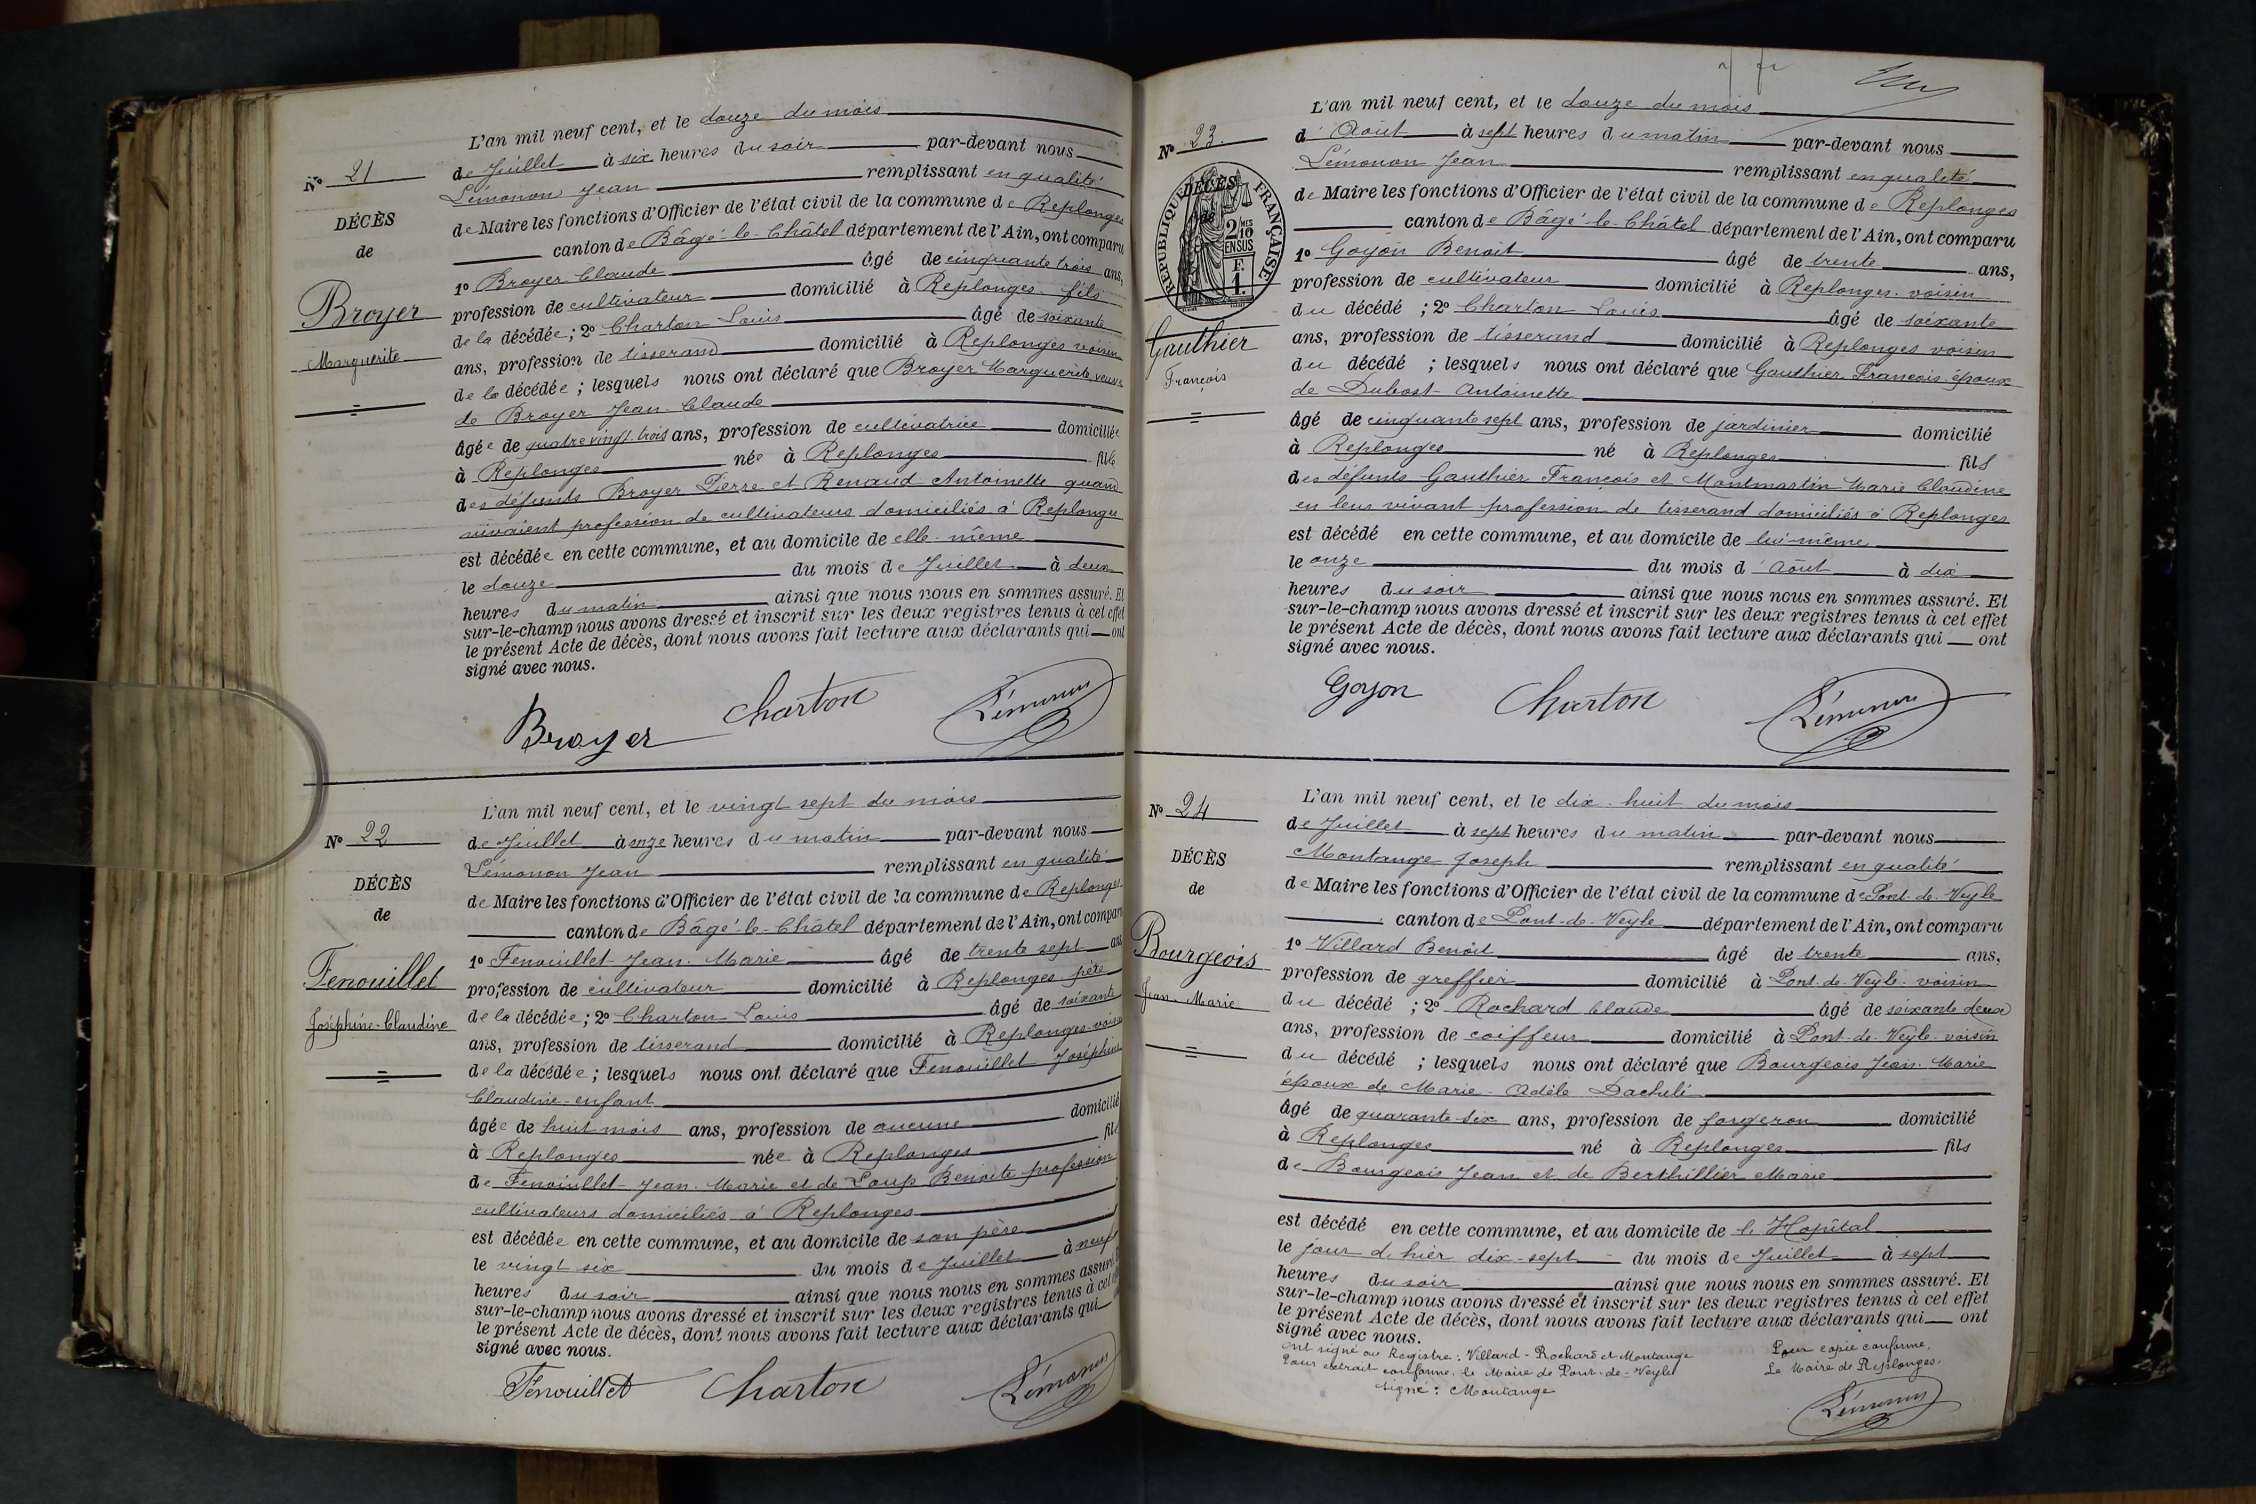 L'an mil neuf cent, et le douze du mois
Nº 21
de Juillet à six heures du soir par-devant nous
Lémonon Jean remplissant en qualité
DÉCÈS
de Maire les fonctions d'Officier de l'état civil de la commune de Replonges
de
canton de Bâgé-le-Châtel département de l'Ain, ont comparu
1º Broyer Claude âgé de cinquante trois ans,
Broyer
profession de cultivateur domicilié à Replonges fils
de la décédée ; 2º Charton Louis âgé de soixante
Marguerite
ans, profession de tisserand domicilié à Replonges voisin
de la décédée ; lesquels nous ont déclaré que Broyer Marguerite veuve
de Broyer Jean-Claude
âgée de quatre vingt trois ans, profession de cultivatrice domiciliée
à Replonges née à Replonges fille
des défunts Broyer Pierre et Renaud Antoinette quand
vivaient profession de cultivateurs domiciliés à Replonges
est décédée en cette commune, et au domicile de elle-même
le douze du mois de Juillet à deux
heures du matin ainsi que nous nous en sommes assuré. Et
sur-le-champ nous avons dressé et inscrit sur les deux registres tenus à cet effet
le présent Acte de décès, dont nous avons fait lecture aux déclarants qui ont
signé avec nous.
Broyer Charton Lémonon
L'an mil neuf cent, et le vingt sept du mois
Nº 22
de Juillet à onze heures du matin par-devant nous
Lémonon Jean remplissant en qualité
DÉCÈS
de Maire les fonctions d'Officier de l'état civil de la commune de Replonges
de
canton de Bâgé-le-Châtel département de l'Ain, ont comparu
1º Fenouillet Jean-Marie âgé de trente sept ans
Fenouillet
profession de cultivateur domicilié à Replonges père
de la décédée ; 2º Charton Louis âgé de soixante
Joséphine-Claudine
ans, profession de tisserand domicilié à Replonges voisin
de la décédée ; lesquels nous ont déclaré que Fenouillet Joséphine
Claudine enfant
âgée de huit mois ans, profession de aucune domicilié
à Replonges née à Replonges fils
de Fenouillet Jean-Marie et de Loup Benoite profession
cultivateurs domiciliés à Replonges
est décédée en cette commune, et au domicile de son père
le vingt six du mois de Juillet à neuf
heures du soir ainsi que nous nous en sommes assuré.
sur-le-champ nous avons dressé et inscrit sur les deux registres tenus à cet
le présent Acte de décès, dont nous avons fait lecture aux déclarants qui
signé avec nous.
Fenouillet Charton Lémonon
L'an mil neuf cent, et le douze du mois
Nº 23.
d'Août à sept heures du matin par-devant nous
Lémonon Jean remplissant en qualité
DÉCÈS
de
RÉPUBLIQUE FRANÇAISE
2/10 MES
EN SUS
F.
1.
de Maire les fonctions d'Officier de l'état civil de la commune de Replonges
canton de Bâgé-le-Châtel département de l'Ain, ont comparu
1º Goyon Benoit âgé de trente ans,
profession de cultivateur domicilié à Replonges voisin
du décédé ; 2º Charton Louis âgé de soixante
Gauthier
ans, profession de tisserand domicilié à Replonges voisin
François
du décédé ; lesquels nous ont déclaré que Gauthier François époux
de Dubost Antoinette
âgé de cinquante sept ans, profession de jardinier domicilié
à Replonges né à Replonges fils
des défunts Gauthier François et Montmartin Marie Claudine
en leur vivant profession de tisserand domiciliés à Replonges
est décédé en cette commune, et au domicile de lui-même
le onze du mois d'Août à dix
heures du soir ainsi que nous nous en sommes assuré. Et
sur-le-champ nous avons dressé et inscrit sur les deux registres tenus à cet effet
le présent Acte de décès, dont nous avons fait lecture aux déclarants qui ont
signé avec nous.
Goyon Charton Lémonon
L'an mil neuf cent, et le dix-huit du mois
Nº 24
de Juillet à sept heures du matin par-devant nous
Montange Joseph remplissant en qualité
DÉCÈS
de Maire les fonctions d'Officier de l'état civil de la commune de Pont-de-Veyle
de
canton de Pont-de-Veyle département de l'Ain, ont comparu
1º Villard Benoît âgé de trente ans,
Bourgeois
profession de greffier domicilié à Pont-de-Veyle voisin
Jean-Marie
du décédé ; 2º Rochard Claude âgé de soixante deux
ans, profession de coiffeur domicilié à Pont-de-Veyle voisin
du décédé ; lesquels nous ont déclaré que Bourgeois Jean-Marie
époux de Marie-Adèle Dacheli
âgé de quarante six ans, profession de forgeron domicilié
à Replonges né à Replonges fils
de Bourgeois Jean et de Berthillier Marie
est décédé en cette commune, et au domicile de l'Hopital
le jour d'hier dix-sept du mois de Juillet à sept
heures du soir ainsi que nous nous en sommes assuré. Et
sur-le-champ nous avons dressé et inscrit sur les deux registres tenus à cet effet
le présent Acte de décès, dont nous avons fait lecture aux déclarants qui ont
signé avec nous.
ont signé au Registre : Villard - Rochard et Montange
Pour extrait conforme. le Maire de Pont-de-Veyle
signé : Montange
Pour copie conforme.
Le Maire de Replonges.
Lémonon